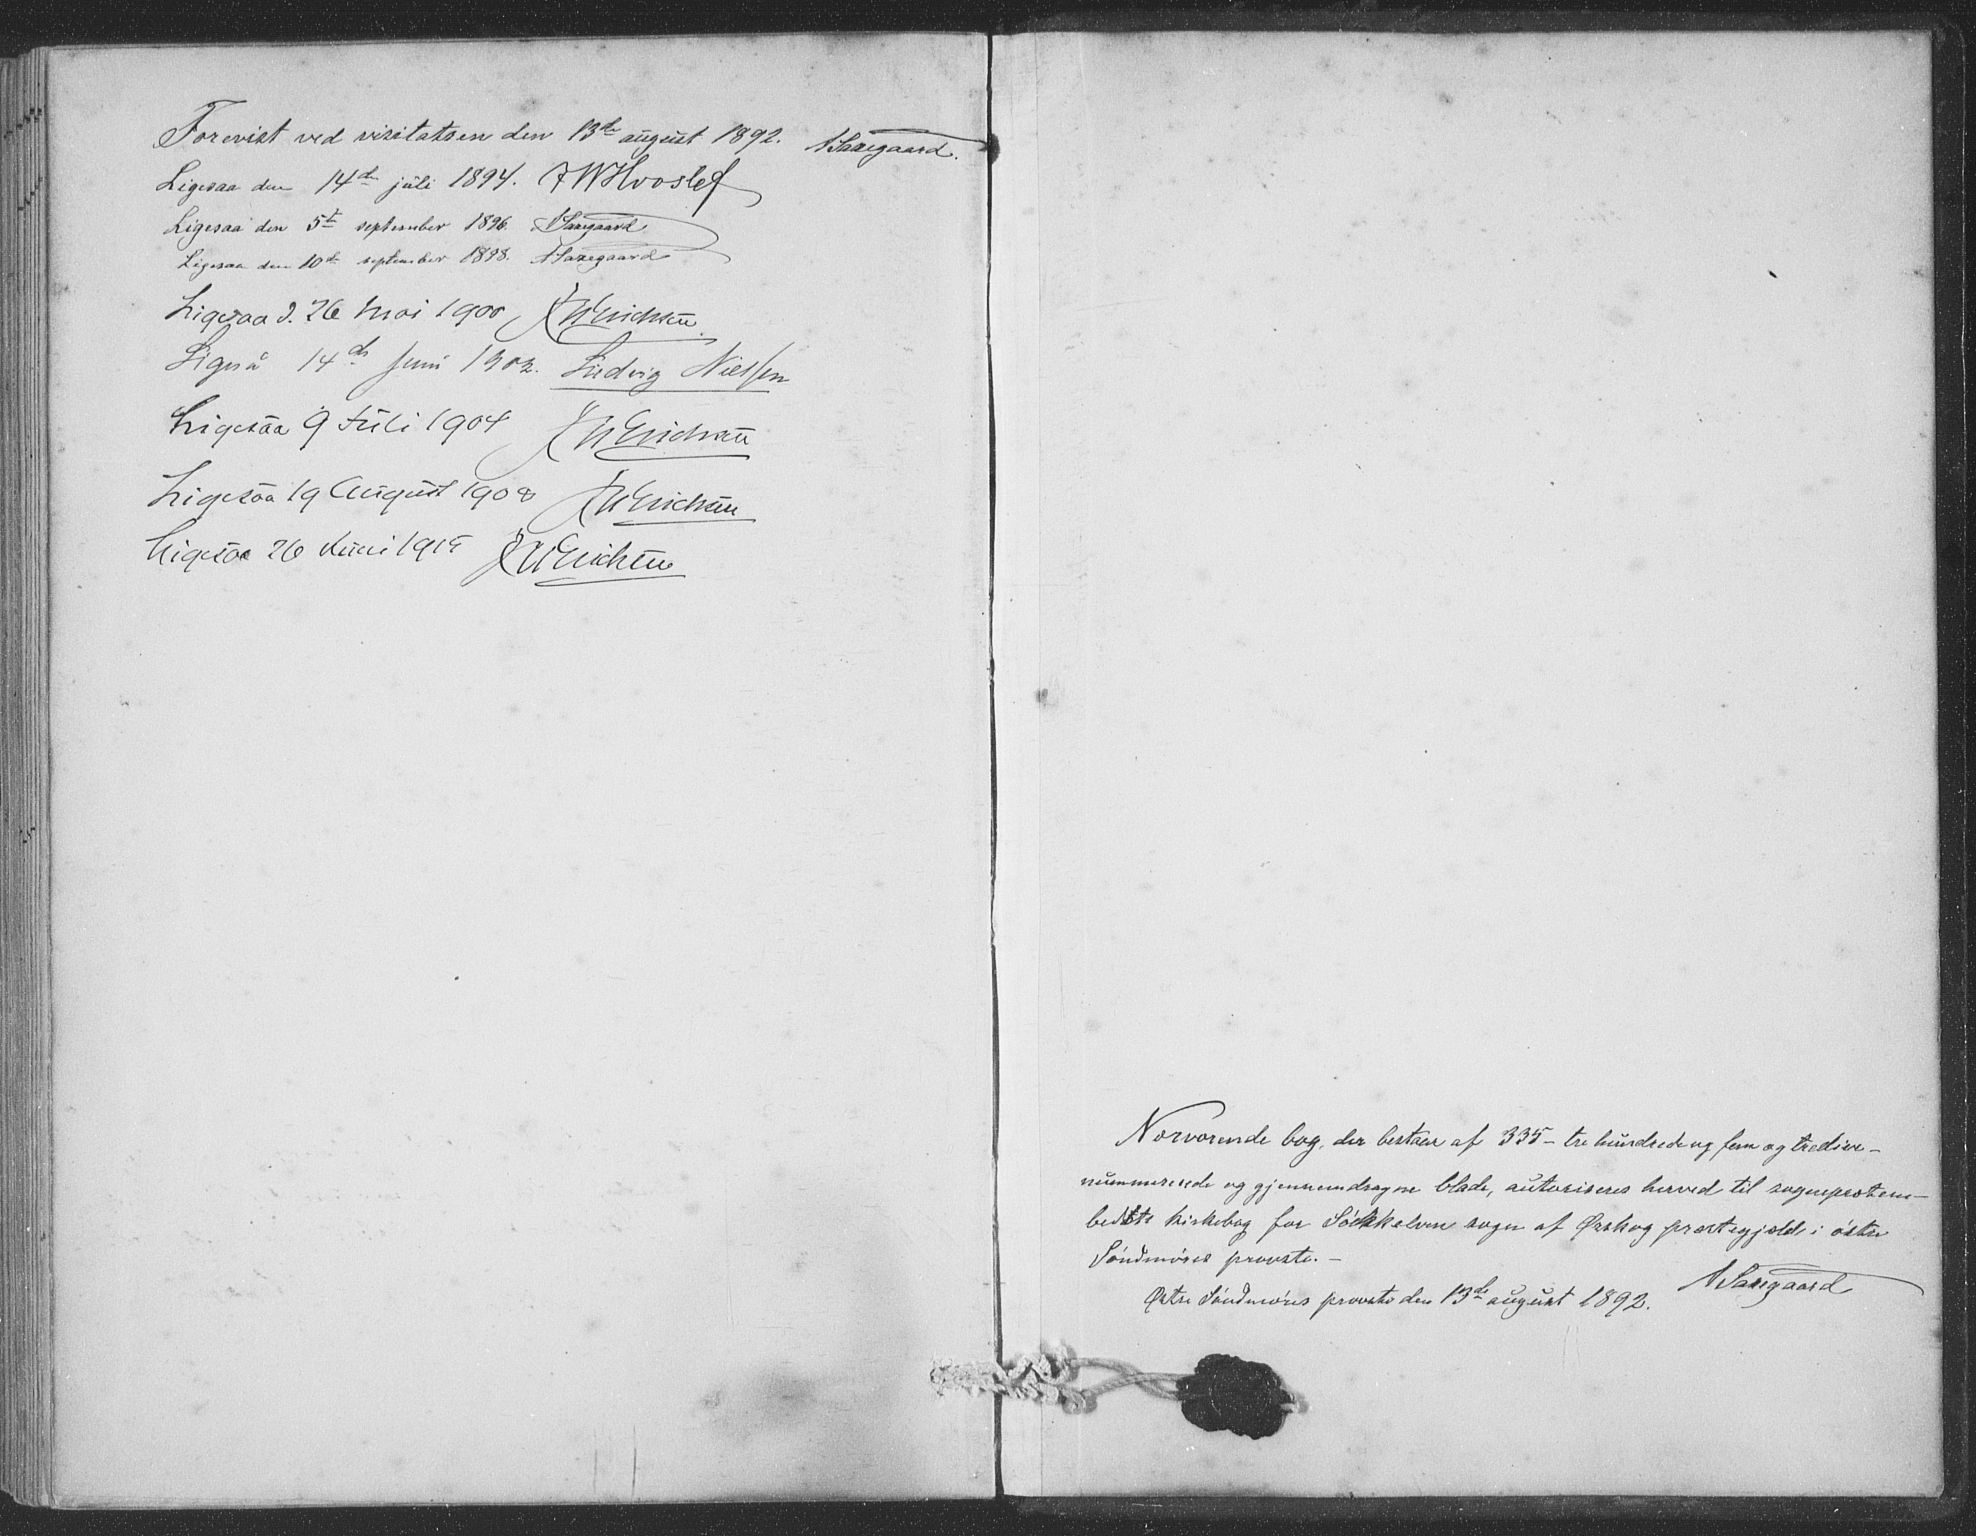 Forevist ved visitatsen den 13de august 1892. N Saxegaard.
Ligesaa den 14de juli 1894. F W Hvoslef
Ligesaa den 5te september 1896. N Saxegaard
Ligesaa den 10de september 1898. N Saxegaard
Ligesaa d. 26 Mai 1900 Erichsen
Ligeså 14de Juni 1902. Ludvig Nielsen
Ligesaa 9 Juli 1904 Erichsen
Ligesaa 19 August 1908 Erichsen
Ligesaa 26 Juni Erichsen
Nærværende bog, der bestaar af 335 – tre hundrede og fem og tredive –
nummererede og gjennemdragne blade, autoriseres herved til sogneprestem–
bedets kirkebog for Søkkelven sogn af Ørskog prestegjeld i østre
Søndmøres provsti. –
Østre Søndmøres provsti den 13de august 1892. N Saxegaard